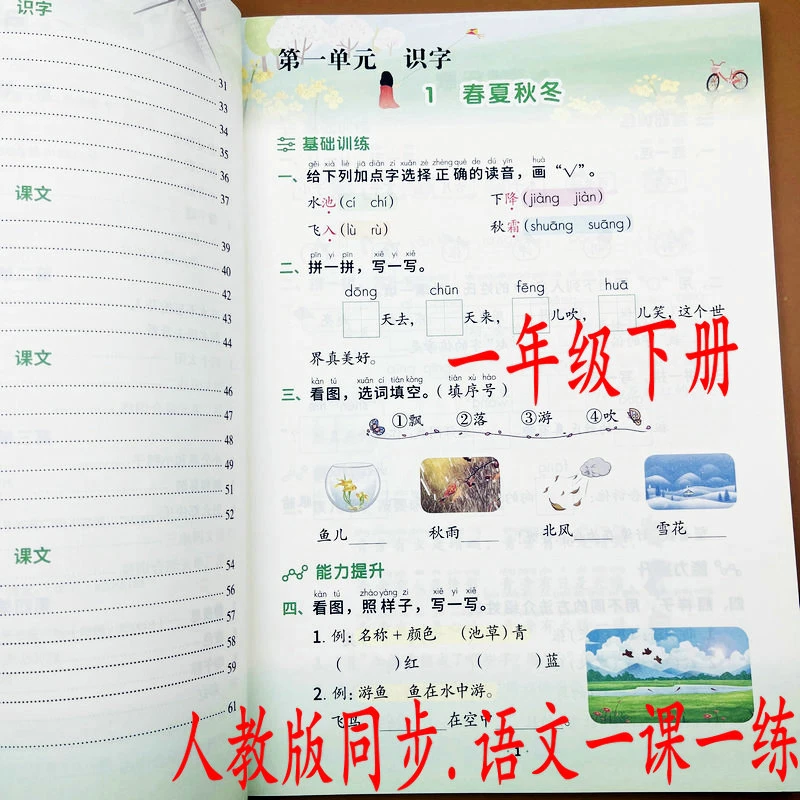 识字
31
33
34
35
36
37
课文
39
40
42
43
44
课文
46
47
48
49
51
52
课文
54
56
57
58
59
61
第一单元 识字
1 春夏秋冬
基础训练
gěi xià liè jiā diǎn zì xuǎn zé zhèng què de dú yīn huà
一、给下列加点字选择正确的读音，画“√”。
水池(cí chí) 下降(jiàng jiàn)
飞入(lù rù) 秋霜(shuāng suāng)
pīn yi pīn xiě yi xiě
二、拼一拼，写一写。
dōng chūn fēng huā
天去， 天来， 儿吹， 儿笑，这个世
界真美好。
一年级下册
kàn tú xuǎn cí tián kòng tián xù hào
三、看图，选词填空。（填序号）
①飘 ②落 ③游 ④吹
鱼儿____ 秋雨____ 北风____ 雪花____
能力提升
kàn tú zhào yàng zi xiě yi xiě
四、看图，照样子，写一写。
1. 例：名称＋颜色 （池草）青
（ ）红 （ ）蓝
2. 例：游鱼 鱼在水中游。
飞鸟____在空中____
人教版同步.语文一课一练
·1·